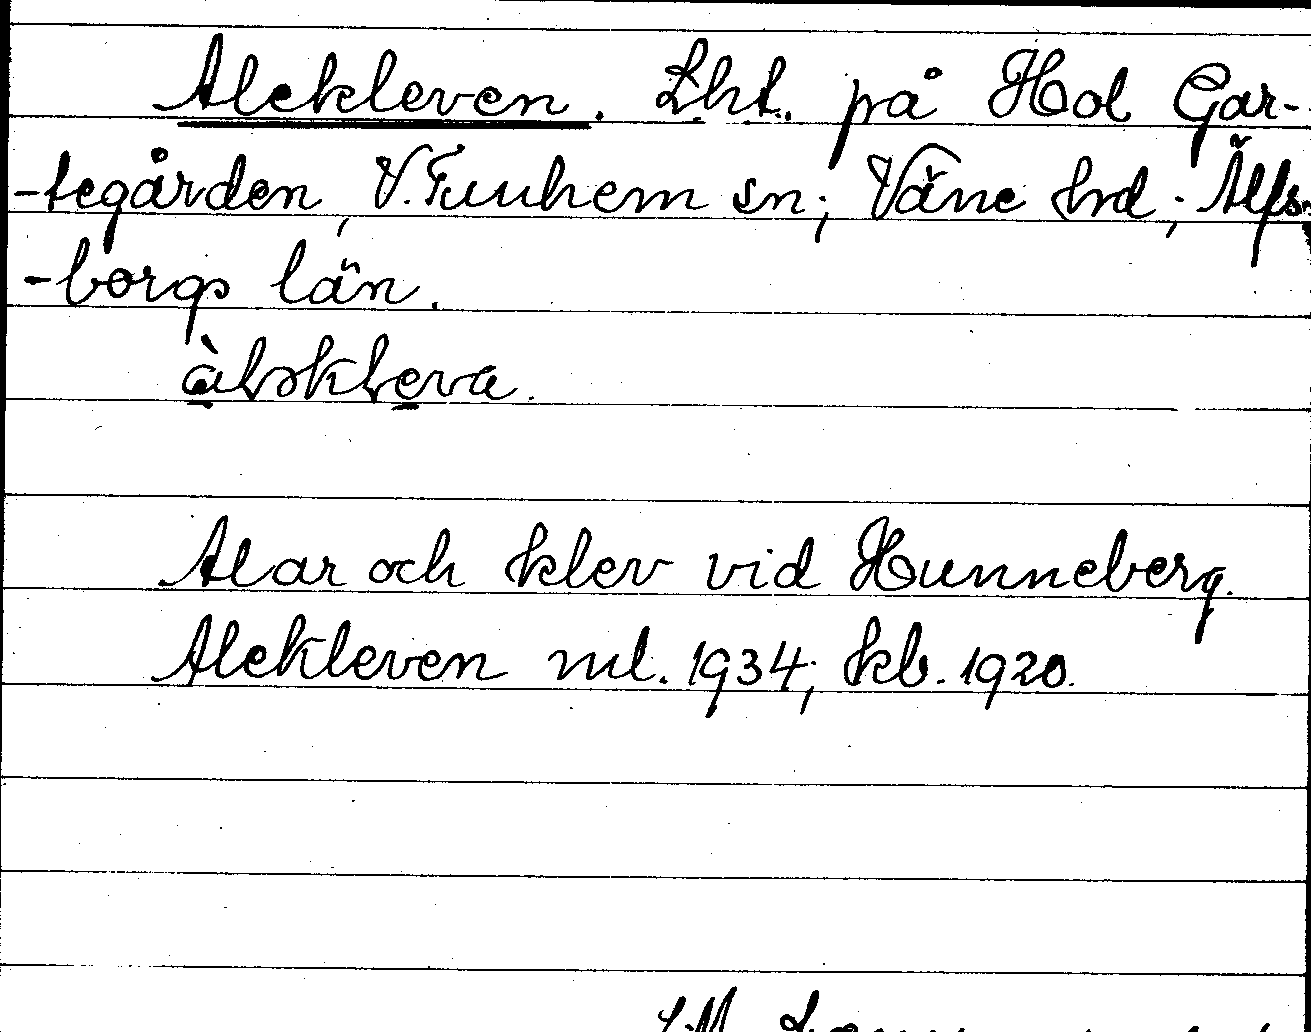 Alekleven. Lht. på Hol Gar-
-tegården, V. Tunhem sn; Väne hrd; Älfs-
-borgs län.
àləkleva.
Alar och klev vid Hunneberg.
Alekleven ml. 1934; kb. 1920.